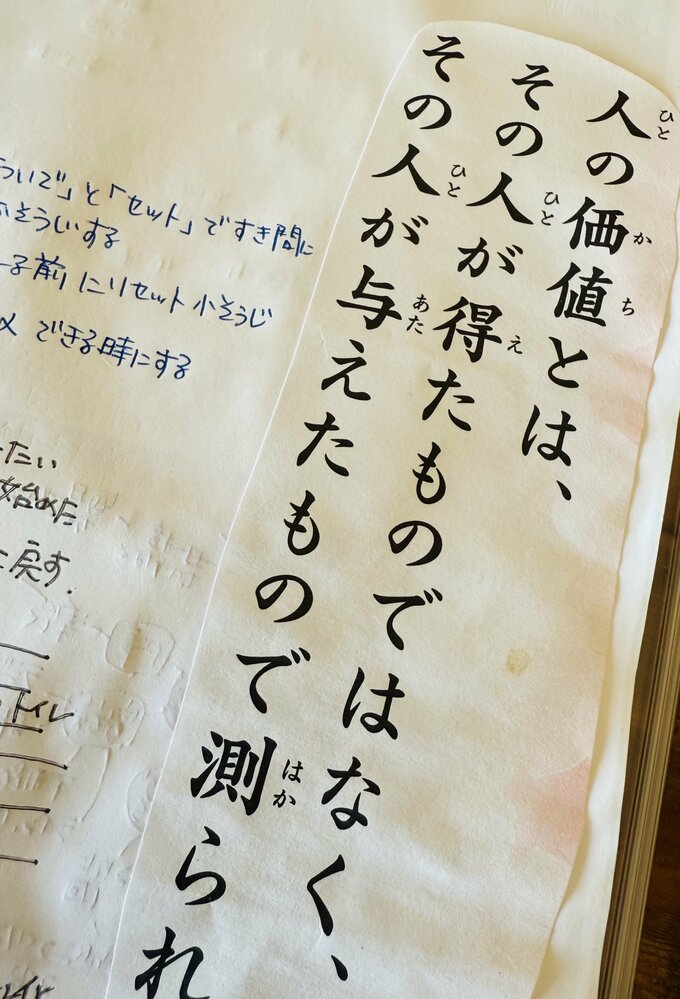 人の価値とは、
その人が得たものではなく、
その人が与えたもので測られ
ひと
か
ち
ひと
え
ひと
あた
はか
」と「セット」ですき間に
そうじする
前にリセット小そうじ
できる時にする
たい
始めた
戻す.
トイレ